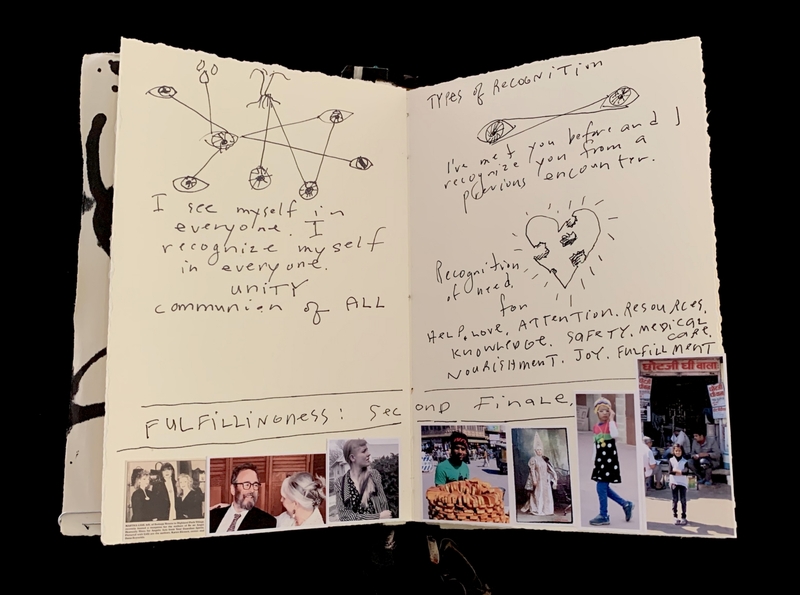 I see myself in
everyone. I
recognize myself
in everyone.
UNITY
communion of ALL
TYPES of RECOGNITION
I've met you before and I
recognize you from a
previous encounter.
Recognition
of need
for
HELP. LOVE. ATTENTION. RESOURCES.
KNOWLEDGE. SAFETY. MEDICAL
CARE.
NOURISHMENT. JOY. FULFILLMENT
FULFILLINGNESS: SECOND FINALE.
छोटजी घी वाला